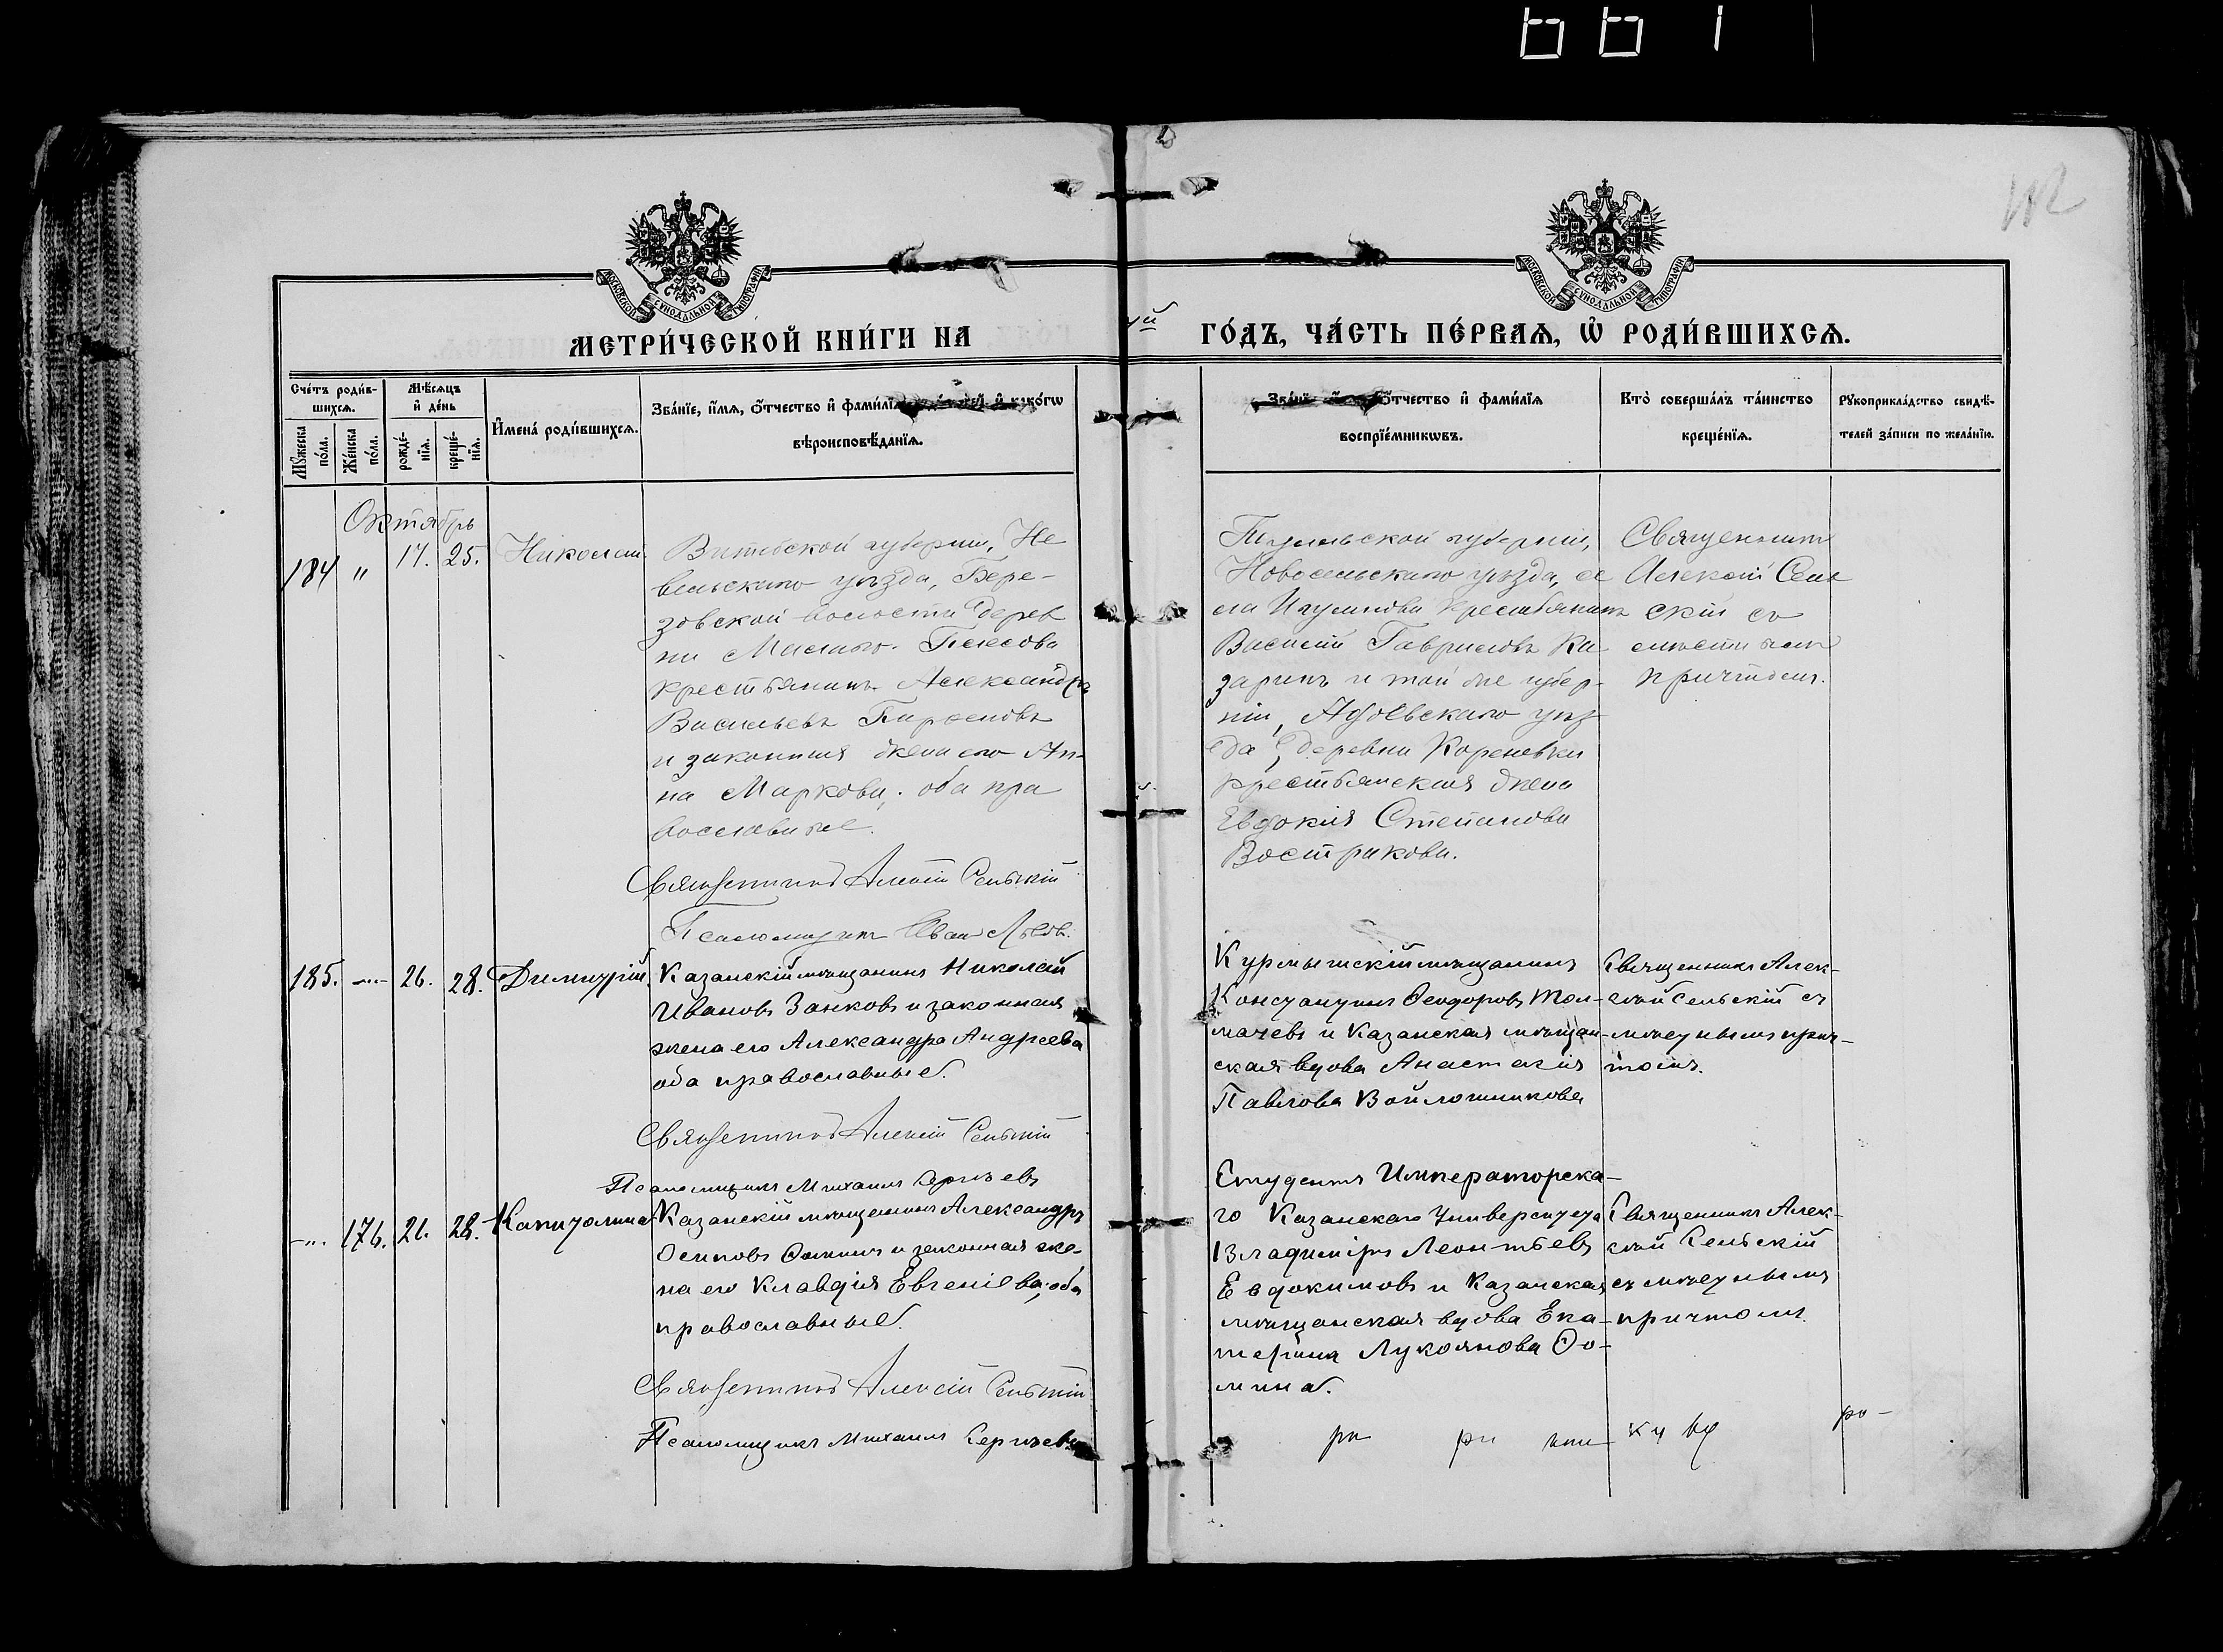 661
112
МОСКОВСКОЙ СѴНОДАЛЬНОЙ ТИПОГРАФІИ
МОСКОВСКОЙ СѴНОДАЛЬНОЙ ТИПОГРАФІИ
МЕТРИ́ЧЕСКОЙ КНИ́ГИ НА
ГО́ДЪ, ЧА́СТЬ ПЕ́РВАЯ, Ѡ҆ РОДИ́ВШИХСЯ.
Сче́тъ роди́в-
шихся.
Мѣ́сяцъ
и҆ де́нь
Мꙋ́жеска по́ла.
Же́нска по́ла.
рожде́-
нїя.
креще́-
нїя.
И҆мена̀ роди́вшихся.
Зва́нїе, и҆́мя, ѻ҆́тчество и҆ фами́лїя
и҆ како́гѡ
вѣроисповѣ́данїя.
ѻ҆́тчество и҆ фами́лїя
воспрїе́мникѡвъ.
Кто̀ соверша́лъ та́инство
креще́нїя.
Рꙋкоприкла́дство свидѣ́-
телей за́писи по жела́нїю.
Октябрь
184 " 17. 25. Николай.
Витебской губерніи, Не
вельскаго уѣзда, Бере-
зовской волости дерев
ни
крестьянинъ Александръ
Васильевъ
и законная жена его Ан-
на Маркова; оба пра
вославные.
Священникъ Алексій Сельскій
Псаломщикъ Иванъ
Тульской губерніи,
Новосельскаго уѣзда, се
ла крестьянинъ
Василій Гавриловъ Ка
заринъ и той же губер-
ніи, уѣз
да, деревни Кореневки
крестьянская жена
Евдокія Степанова
Вострикова.
Священникъ
Алексій Сель
скій съ
мѣстнымъ
причтомъ.
185. -"- 26. 28. Димитрій.
Казанскій мѣщанинъ Николай
Ивановъ Занковъ и законная
жена его Александра Андреева
оба православные.
Священникъ Алексій Сельскій
Псаломщикъ Михаилъ Сергѣевъ
Курмышскій мѣщанинъ
Константинъ Ѳеодоровъ Тол-
мачевъ и Казанская мѣщан-
ская вдова Анастасія
Павлова Войлошникова
Священникъ Алек-
сѣй Сельскій съ
мѣстнымъ прич-
томъ.
-"- 176. 21. 28. Капитолина
Казанскій мѣщанинъ Александръ
Осиповъ Ѳоминъ и законная же-
на его Клавдія Евгеніева; оба
православные.
Священникъ Алексій Сельскій
Псаломщикъ Михаилъ Сергѣевъ
Студентъ Императорска-
го Казанскаго Университета
Владиміръ Леонтьевъ
Евдокимовъ и Казанская
мѣщанская вдова Ека-
терина Лукоянова Ѳо-
мина.
Священникъ Алек-
сѣй Сельскій
съ мѣстнымъ
причтомъ.